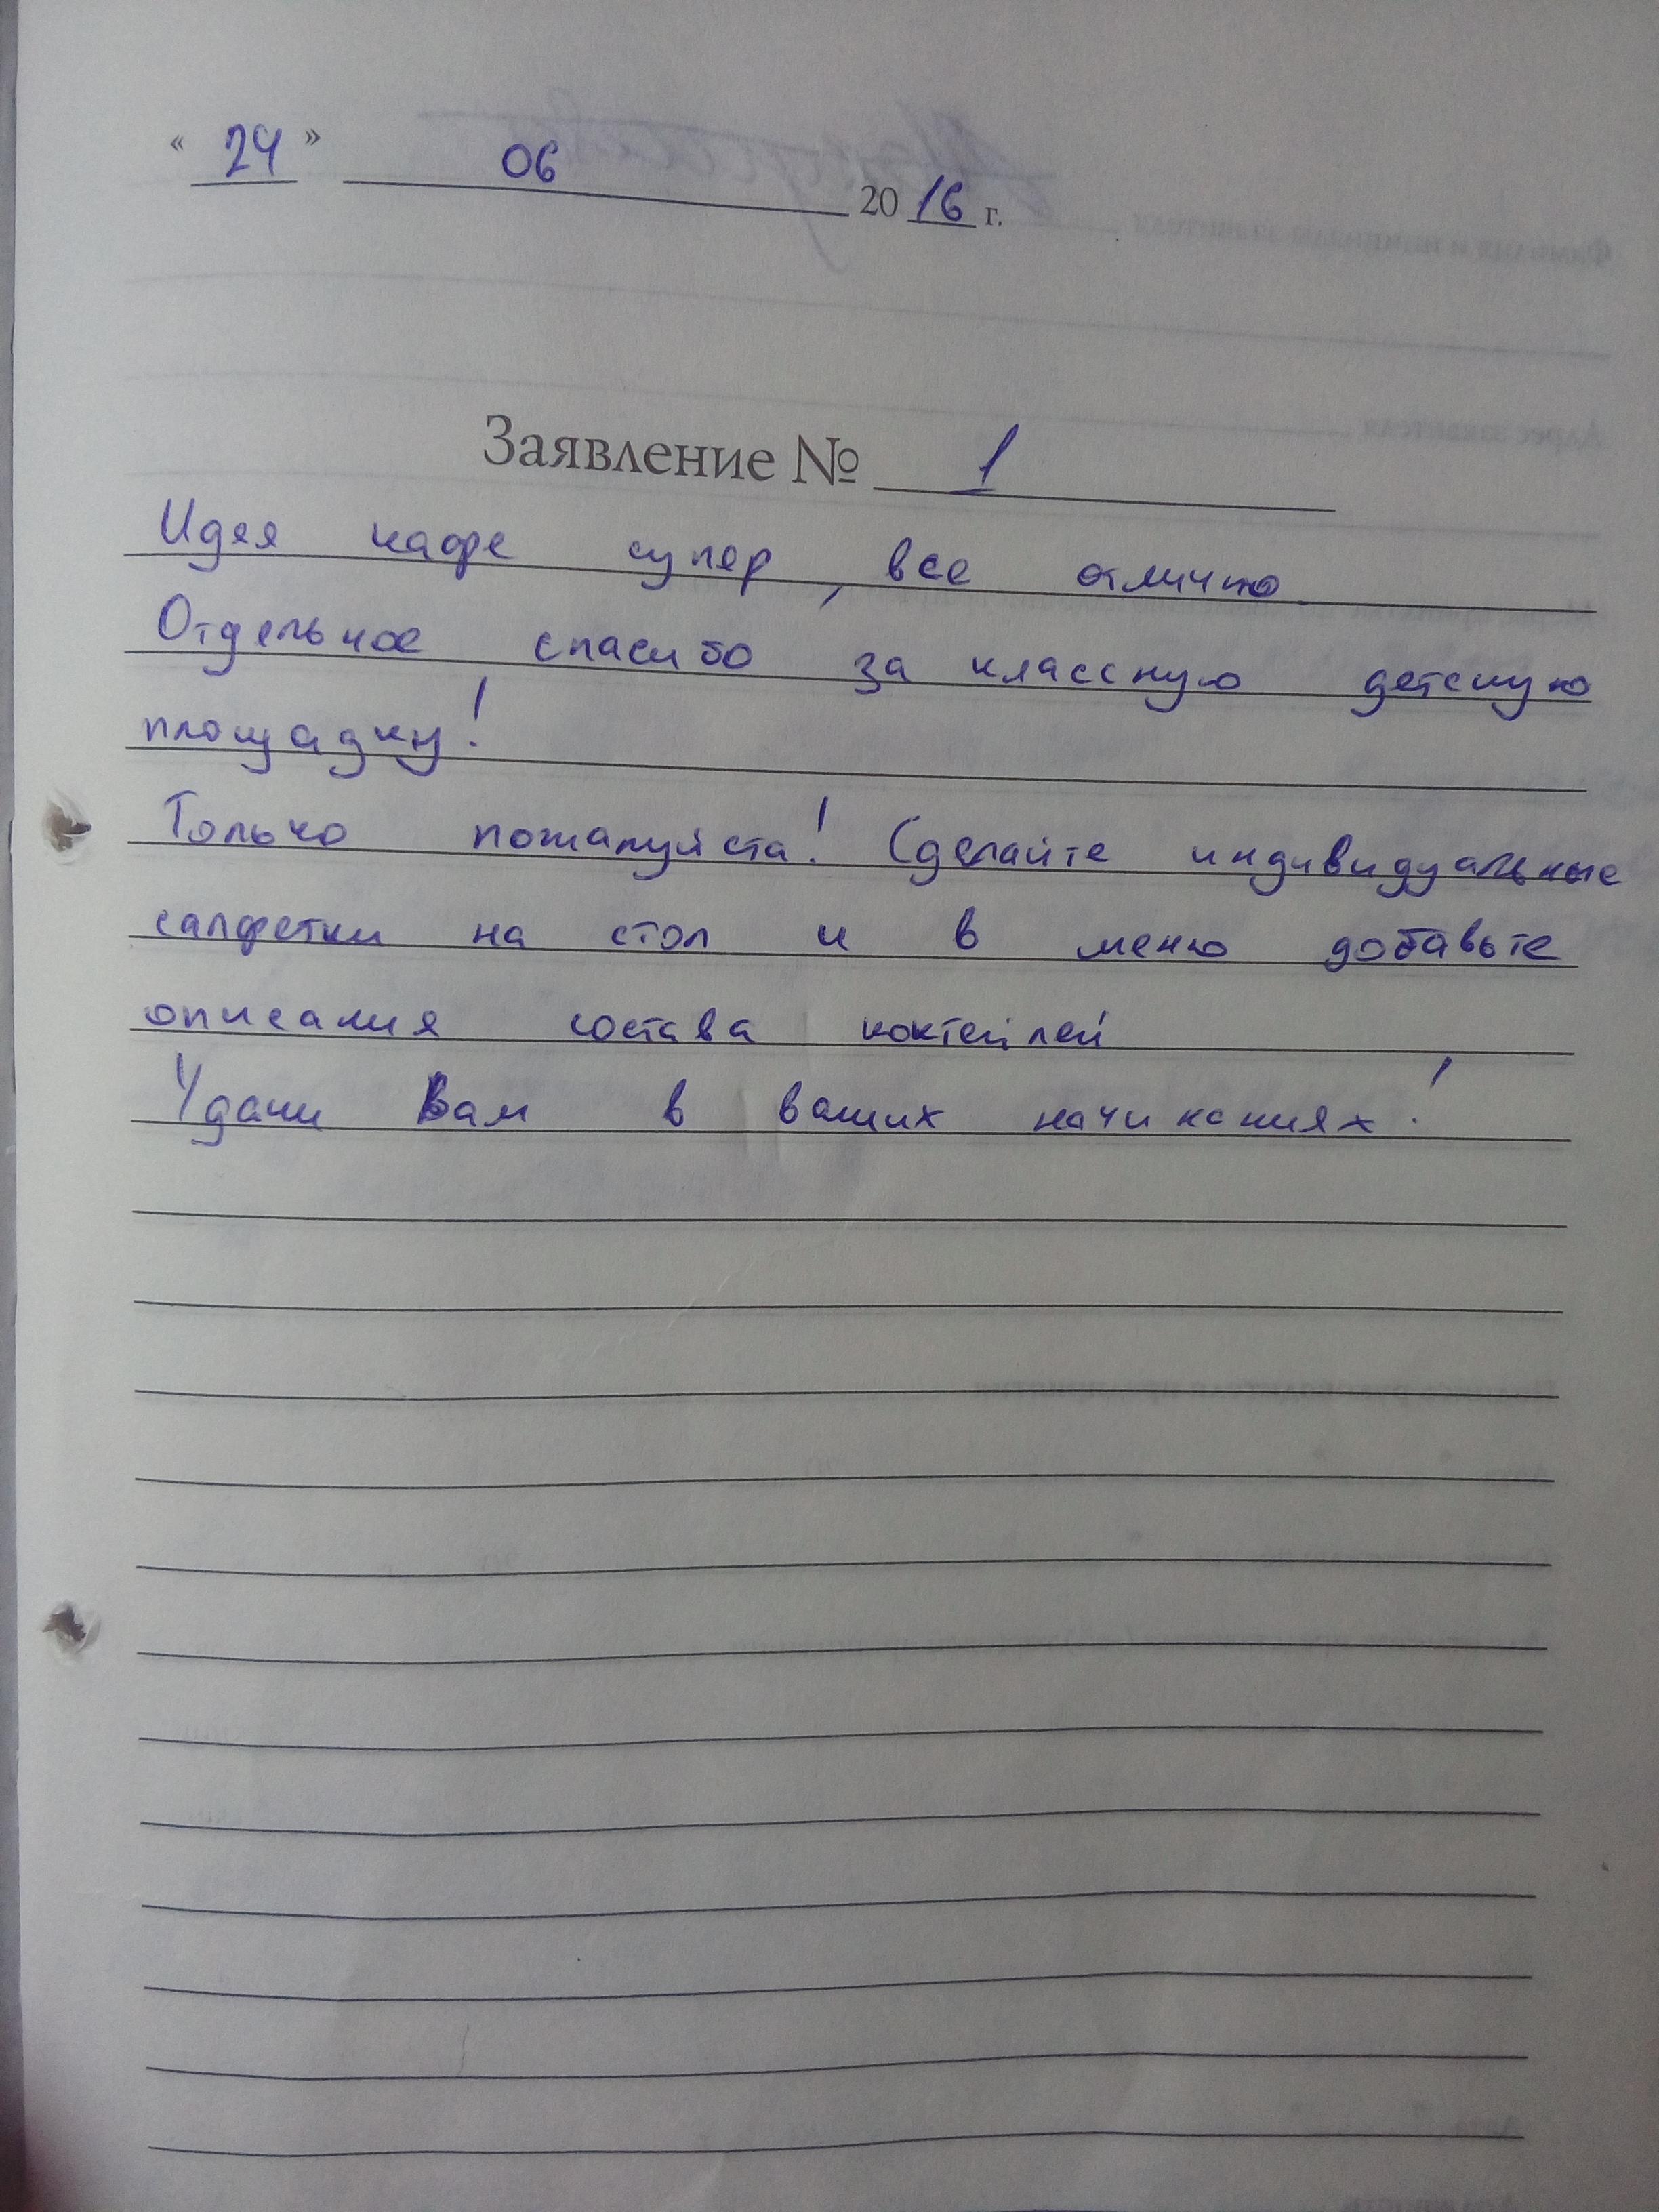 « 24 » 06 2016 г.
Заявление № 1
Идея кафе супер, все отлично.
Отдельное спасибо за классную детскую
площадку!
Только пожалуйста! Сделайте индивидуальные
салфетки на стол и в меню добавьте
описания состава коктейлей
Удачи Вам в ваших начинаниях!